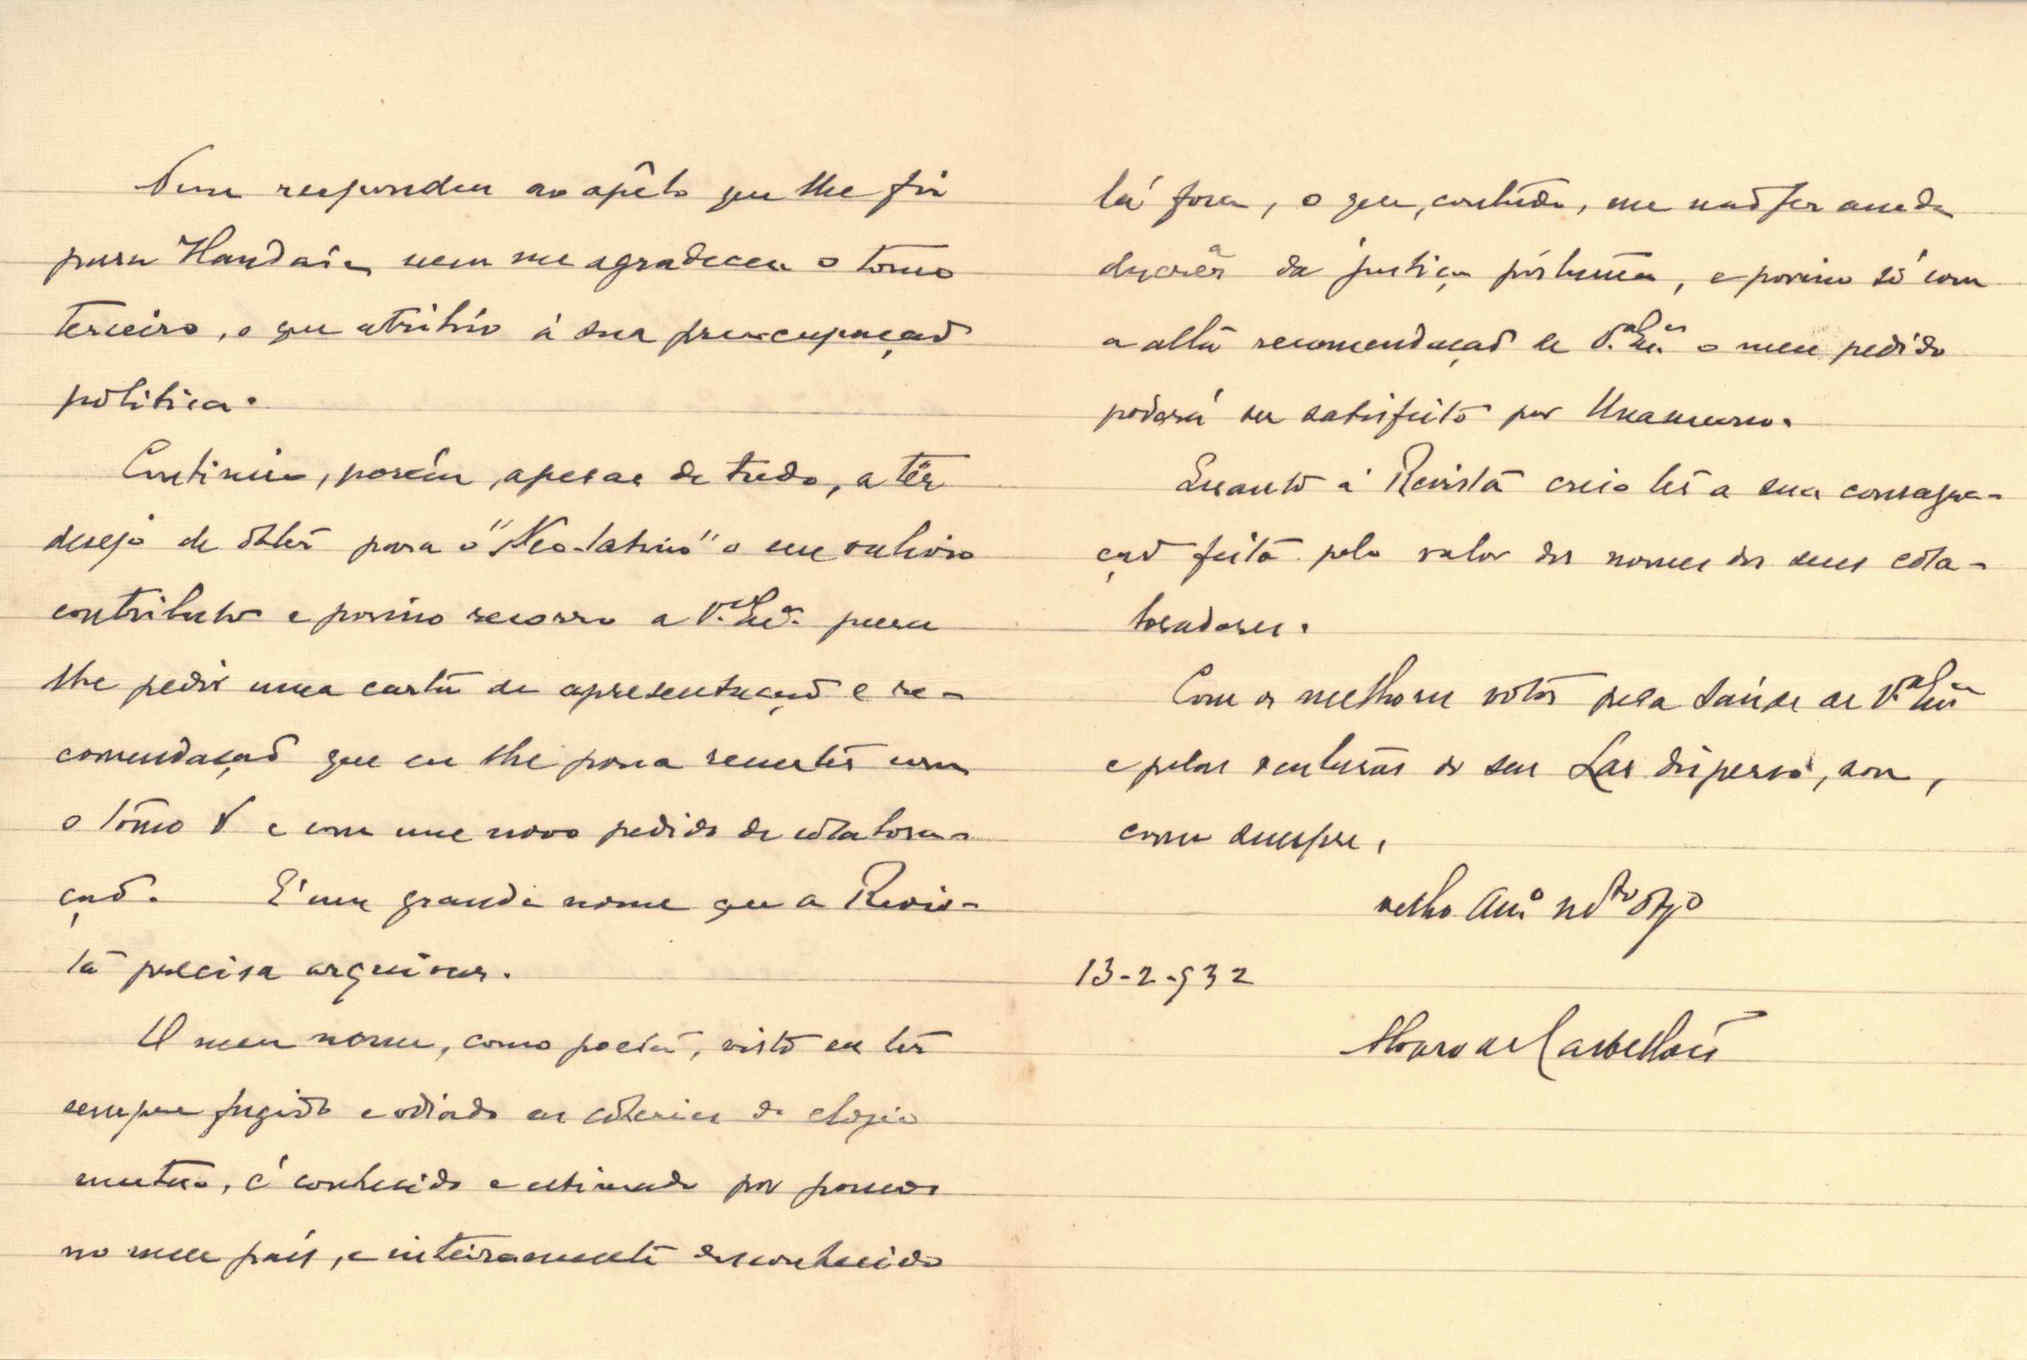 Nem respondeu ao apêlo que lhe fiz
para Handaia nem me agradeceu o tomo
terceiro, o que atribúo á sua preocupação
politica.
Continúo, porém, apesar de tudo, a têr
desejo de obter para o "Neo-latino" o seu valioso
contributo e por isso recorro a V.ª Ex.ª para
lhe pedir uma carta de apresentação e re-
comendação que eu lhe possa remeter com
o tômo V e com um novo pedido de colabora-
ção. E' um grande nome que a Revis-
ta precisa arquivar.
O meu nome, como poeta, visto eu ter
sempre fugido e odiado as coteries do elogio
mutuo, é conhecido e estimado por poucos
no meu país, e inteiramente desconhecido
lá fora, o que, contudo, me não faz ainda
descrêr da justiça póstuma, e por isso só com
a alta recomendação de V.ª Ex.ª o meu pedido
poderá ser satisfeito por Unamuno.
Quanto á Revista creio ter a sua consagra-
ção feita pelo valor dos nomes dos seus cola-
boradores.
Com os melhores votos pela saúde de V.ª Ex.ª
e pelas venturas do seu Lar disperso, sou,
como sempre,
velho Am.º e obg.º
13-2-932
Alvaro de Castellões